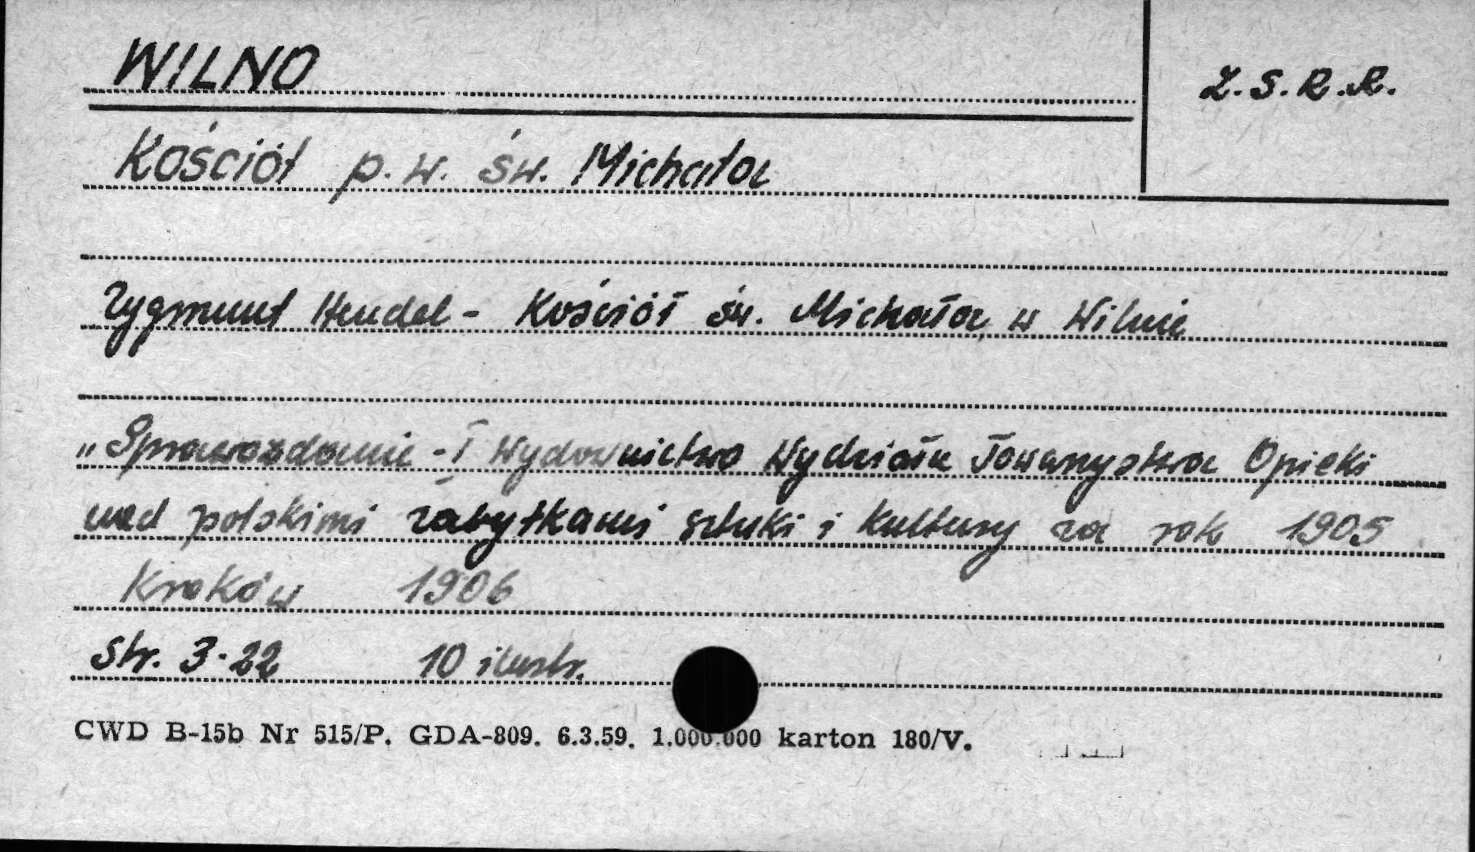 WILNO
Z.S.R.R.
Kościół p.w. św. Michała
Zygmunt Hendel - Kościół św. Michała w Wilnie
„Sprawozdanie - I Wydawnictwo Wydziału Towarzystwa Opieki
nad polskimi zabytkami sztuki i kultury za rok 1905
Kraków 1906
str. 3-22 10 ilustr.
CWD B-15b Nr 515/P. GDA-809. 6.3.59. 1.000.000 karton 180/V.